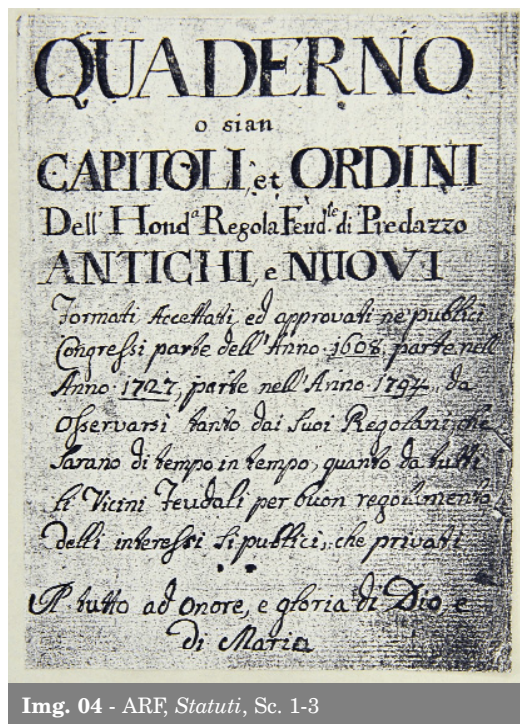 QUADERNO
o sian
CAPITOLI, et ORDINI
Dell' Hond.a Regola Feud.le di Predazzo
ANTICHI, e NUOVI
Formati Accettati, ed approvati ne' publici
Congressi parte dell'Anno 1608, parte nell'
Anno 1727, parte nell'Anno 1794, da
osservarsi tanto dai suoi Regolani, che
sarano di tempo in tempo, quanto da tutti
li Vicini Feudali per buon regolamento
delli interessi sì publici, che privati
Il tutto ad onore, e gloria di Dio, e
di Maria
Img. 04 - ARF, Statuti, Sc. 1-3